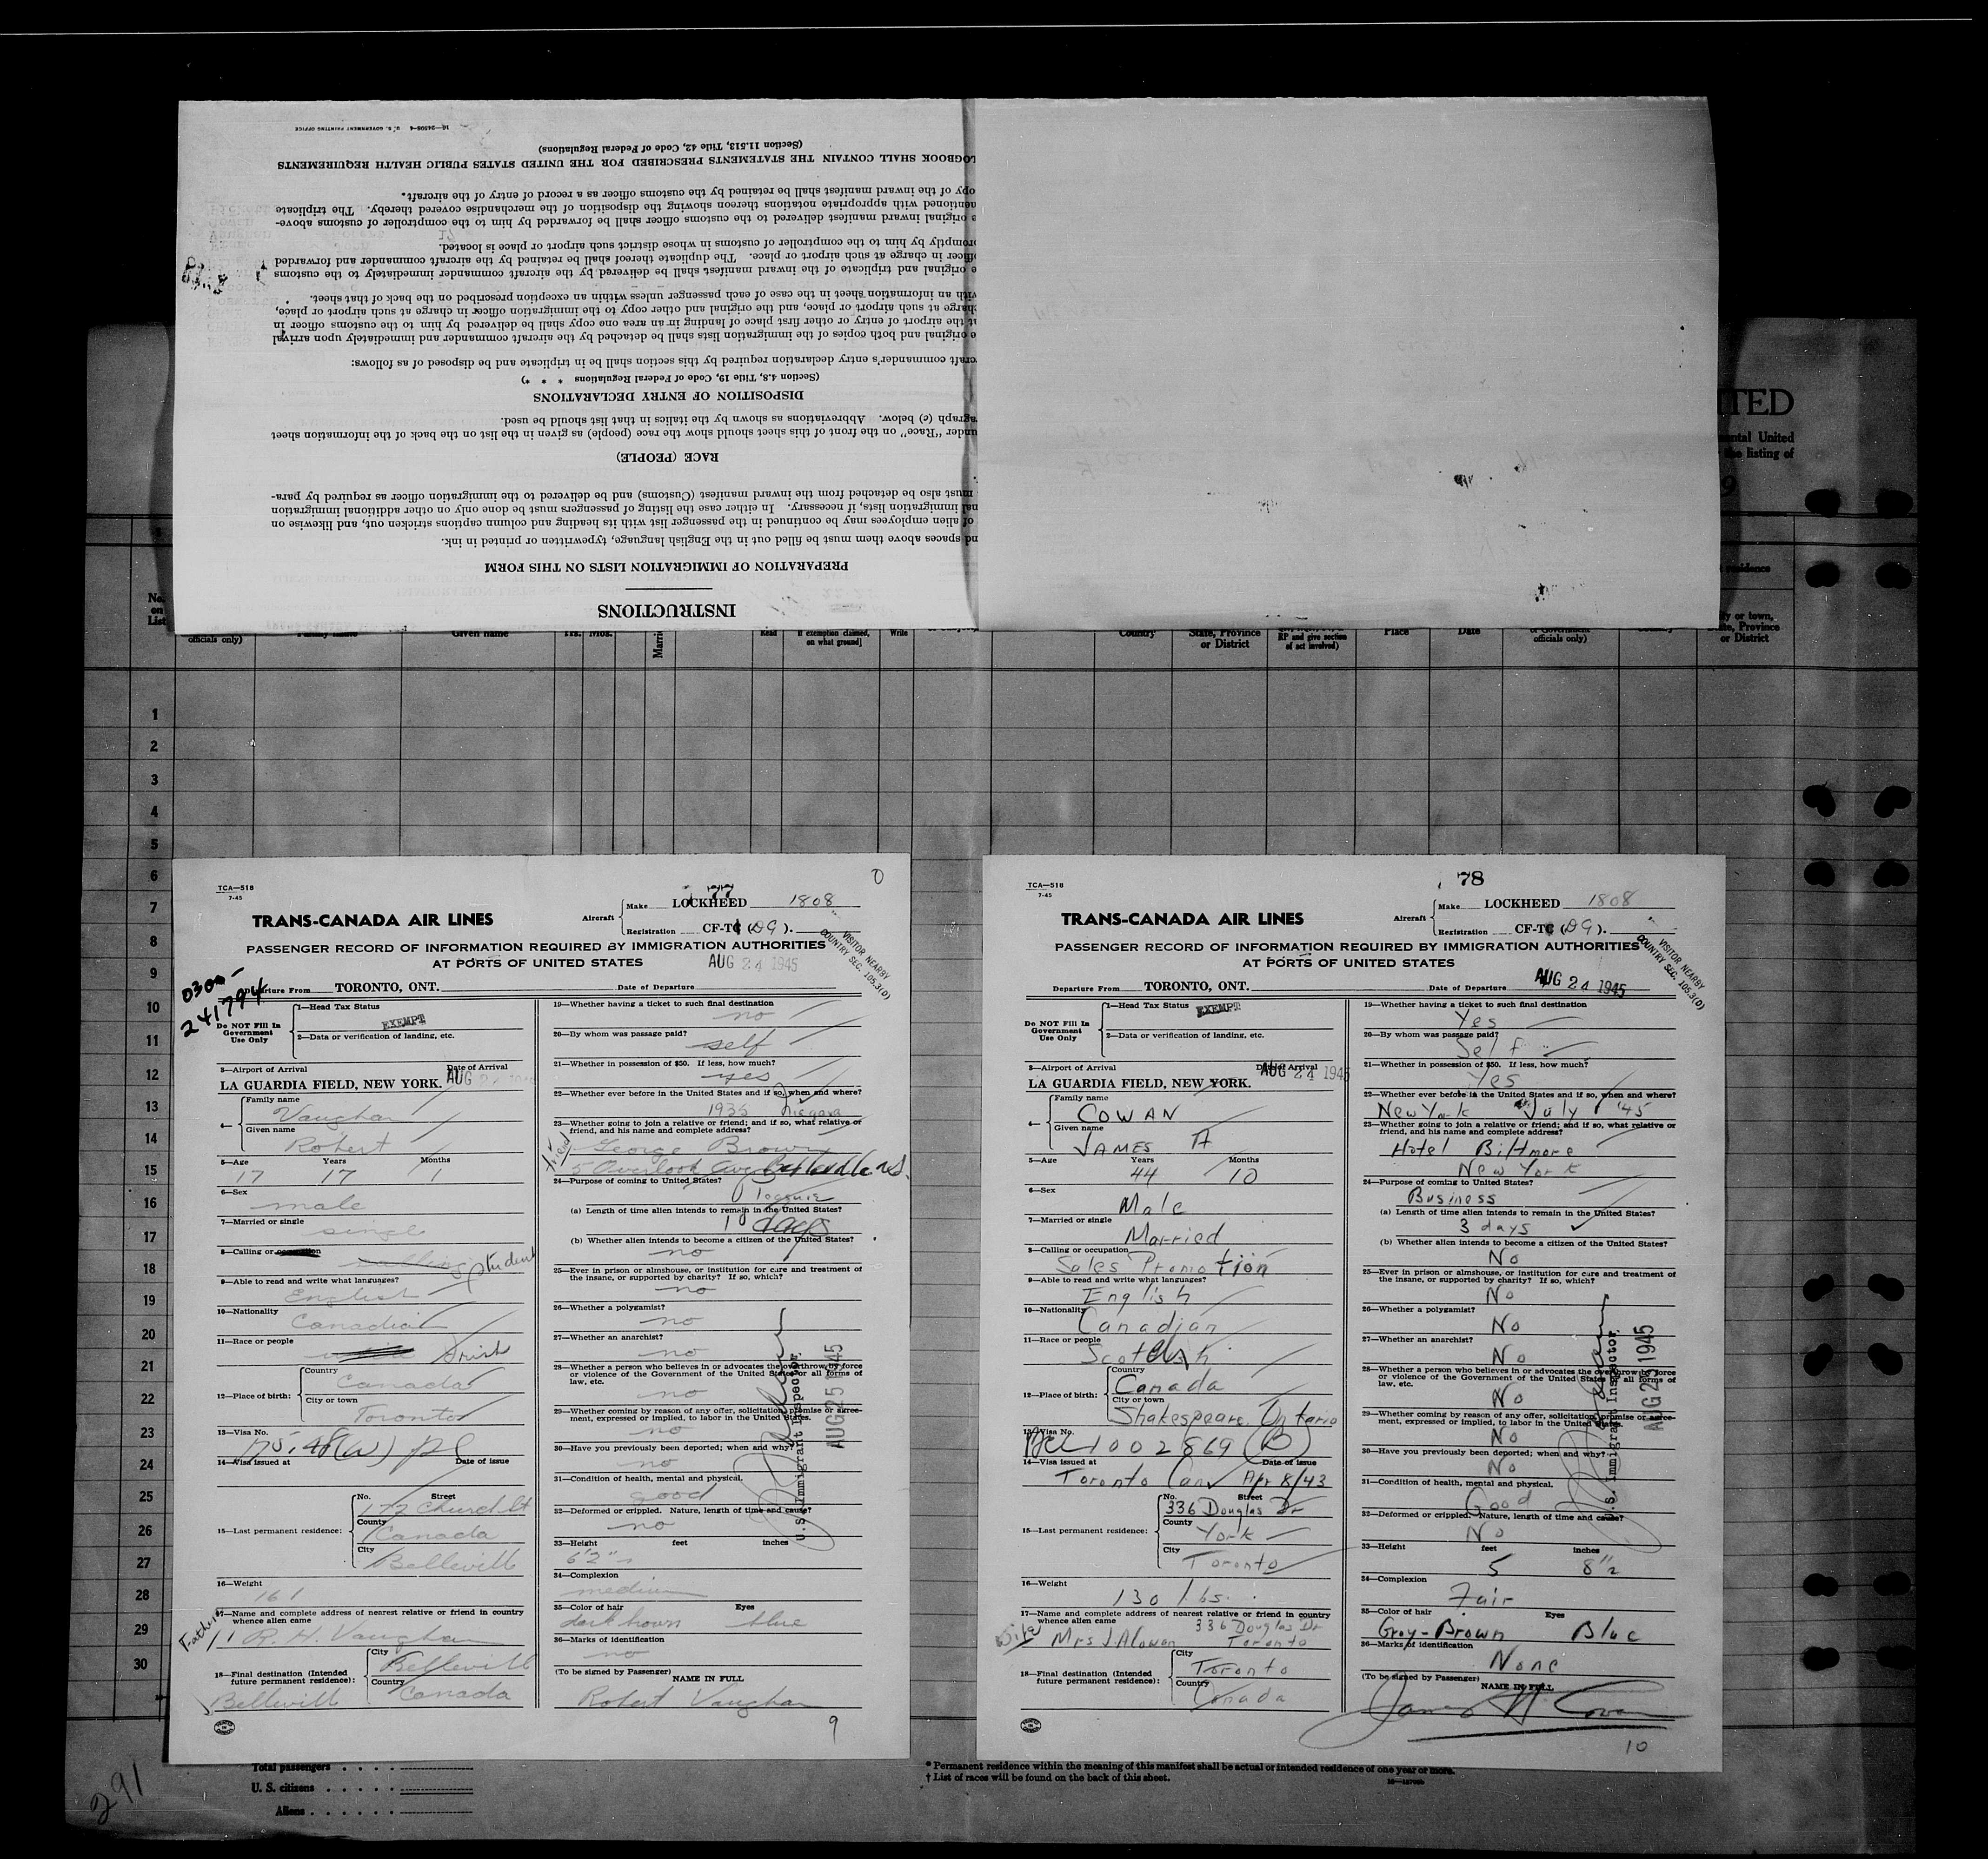 INSTRUCTIONS
PREPARATION OF IMMIGRATION LISTS ON THIS FORM
spaces above them must be filled out in the English language, typewritten or printed in ink.
of alien employees may be continued in the passenger list with its heading and column captions stricken out, and likewise on
immigration lists, if necessary. In either case the listing of passengers must be done only on other additional immigration
must also be detached from the inward manifest (Customs) and be delivered to the immigration officer as required by para-
RACE (PEOPLE)
under "Race" on the front of this sheet should show the race (people) as given in the list on the back of the information sheet
(c) below. Abbreviations as shown by the italics in that list should be used.
DISPOSITION OF ENTRY DECLARATIONS
(Section 4.8, Title 19, Code of Federal Regulations * * *)
commander's entry declaration required by this section shall be in triplicate and be disposed of as follows:
original and both copies of the immigration lists shall be detached by the aircraft commander and immediately upon arrival
at the airport of entry or other first place of landing in an area one copy shall be delivered by him to the customs officer in
charge at such airport or place, and the original and other copy to the immigration officer in charge at such airport or place,
with an information sheet in the case of each passenger unless within an exception prescribed on the back of that sheet.
original and triplicate of the inward manifest shall be delivered by the aircraft commander immediately to the customs
officer in charge at such airport or place. The duplicate thereof shall be retained by the aircraft commander and forwarded
promptly by him to the comptroller of customs in whose district such airport or place is located.
original inward manifest delivered to the customs officer shall be forwarded by him to the comptroller of customs above-
mentioned with appropriate notations thereon showing the disposition of the merchandise covered thereby. The triplicate
copy of the inward manifest shall be retained by the customs officer as a record of entry of the aircraft.
LOGBOOK SHALL CONTAIN THE STATEMENTS PRESCRIBED FOR THE UNITED STATES PUBLIC HEALTH REQUIREMENTS
(Section 11.513, Title 42, Code of Federal Regulations)
16—24598-4 U. S. GOVERNMENT PRINTING OFFICE
ITED
United
the listing of
9
residence
No. on List
officials only)
Given name
Yrs. Mos.
Read
[If exemption claimed, on what ground]
Write
Country
State, Province or District
RP and give section of act involved)
Place
Date
officials only)
or town, Province or District
1
2
3
4
5
6
7
8
9
10
11
12
13
14
15
16
17
18
19
20
21
22
23
24
25
26
27
28
29
30
TCA—518
7-45
77
0
Aircraft
Make LOCKHEED 1808
Registration CF-TC (DG).
TRANS-CANADA AIR LINES
PASSENGER RECORD OF INFORMATION REQUIRED BY IMMIGRATION AUTHORITIES
AT PORTS OF UNITED STATES
AUG 24 1945
VISITOR NEARBY
COUNTRY SEC. 105.3(D)
0300-
241794
Departure From TORONTO, ONT. Date of Departure
Do NOT Fill In Government Use Only
1—Head Tax Status
EXEMPT
2—Data or verification of landing, etc.
3—Airport of Arrival Date of Arrival
LA GUARDIA FIELD, NEW YORK. AUG 24 1945
4— Family name
Vaughan
Given name
Robert
5—Age Years Months
17 17 1
6—Sex
male
7—Married or single
single
8—Calling or occupation
student
9—Able to read and write what languages?
English
10—Nationality
Canadian
11—Race or people
Irish
12—Place of birth: Country
Canada
City or town
Toronto
13—Visa No.
175.48(a) pl
14—Visa issued at Date of issue
15—Last permanent residence: No. Street
172 Church St
County
Canada
City
Belleville
16—Weight
161
17—Name and complete address of nearest relative or friend in country whence alien came
Father
R. H. Vaughan
18—Final destination (Intended future permanent residence): City
Belleville
Country
Canada
Belleville
19—Whether having a ticket to such final destination
no
20—By whom was passage paid?
self
21—Whether in possession of $50. If less, how much?
yes
22—Whether ever before in the United States and if so, when and where?
1935 Niagara
23—Whether going to join a relative or friend; and if so, what relative or friend, and his name and complete address?
George Brown
5 Overlook Ave
24—Purpose of coming to United States?
(a) Length of time alien intends to remain in the United States?
10 days
(b) Whether alien intends to become a citizen of the United States?
no
25—Ever in prison or almshouse, or institution for care and treatment of the insane, or supported by charity? If so, which?
no
26—Whether a polygamist?
no
27—Whether an anarchist?
no
28—Whether a person who believes in or advocates the overthrow by force or violence of the Government of the United States or all forms of law, etc.
no
29—Whether coming by reason of any offer, solicitation, promise or agreement, expressed or implied, to labor in the United States.
no
30—Have you previously been deported; when and why?
no
31—Condition of health, mental and physical.
good
32—Deformed or crippled. Nature, length of time and cause?
no
33—Height feet inches
6'2"
34—Complexion
medium
35—Color of hair Eyes
dark brown blue
36—Marks of identification
no
(To be signed by Passenger) NAME IN FULL
Robert Vaughan
U.S. Immigrant Inspector.
AUG 25 1945
9
TCA—518
7-45
78
Aircraft
Make LOCKHEED 1808
Registration CF-TC (DG).
TRANS-CANADA AIR LINES
PASSENGER RECORD OF INFORMATION REQUIRED BY IMMIGRATION AUTHORITIES
AT PORTS OF UNITED STATES
VISITOR NEARBY
COUNTRY SEC. 105.3(D)
Departure From TORONTO, ONT. Date of Departure AUG 24 1945
Do NOT Fill In Government Use Only
1—Head Tax Status
EXEMPT
2—Data or verification of landing, etc.
3—Airport of Arrival Date of Arrival
LA GUARDIA FIELD, NEW YORK. AUG 24 1945
4— Family name
COWAN
Given name
JAMES A
5—Age Years Months
44 10
6—Sex
Male
7—Married or single
Married
8—Calling or occupation
Sales Promotion
9—Able to read and write what languages?
English
10—Nationality
Canadian
11—Race or people
Scottish
12—Place of birth: Country
Canada
City or town
Shakespeare, Ontario
13—Visa No.
1002869 (B)
14—Visa issued at Date of issue
Toronto Can Apr 8/43
15—Last permanent residence: No. Street
336 Douglas Dr
County
York
City
Toronto
16—Weight
130 lbs.
17—Name and complete address of nearest relative or friend in country whence alien came
Wife
Mrs J. A. Cowan 336 Douglas Dr Toronto
18—Final destination (Intended future permanent residence): City
Toronto
Country
Canada
19—Whether having a ticket to such final destination
Yes
20—By whom was passage paid?
Self
21—Whether in possession of $50. If less, how much?
Yes
22—Whether ever before in the United States and if so, when and where?
New York July '45
23—Whether going to join a relative or friend; and if so, what relative or friend, and his name and complete address?
Hotel Biltmore
New York
24—Purpose of coming to United States?
Business
(a) Length of time alien intends to remain in the United States?
3 days
(b) Whether alien intends to become a citizen of the United States?
No
25—Ever in prison or almshouse, or institution for care and treatment of the insane, or supported by charity? If so, which?
No
26—Whether a polygamist?
No
27—Whether an anarchist?
No
28—Whether a person who believes in or advocates the overthrow by force or violence of the Government of the United States or all forms of law, etc.
No
29—Whether coming by reason of any offer, solicitation, promise or agreement, expressed or implied, to labor in the United States.
No
30—Have you previously been deported; when and why?
No
31—Condition of health, mental and physical.
Good
32—Deformed or crippled. Nature, length of time and cause?
No
33—Height feet inches
5 8½"
34—Complexion
Fair
35—Color of hair Eyes
Gray-Brown Blue
36—Marks of identification
None
(To be signed by Passenger) NAME IN FULL
James A Cowan
U.S. Immigrant Inspector.
AUG 25 1945
10
Total passengers
U. S. citizens
Aliens
* Permanent residence within the meaning of this manifest shall be actual or intended residence of one year or more.
† List of races will be found on the back of this sheet.
291